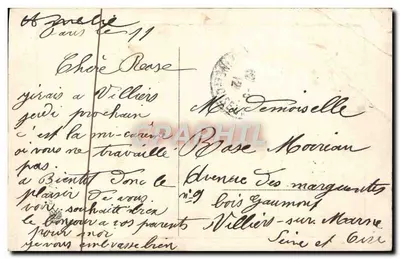 Paris le 11
Chère Rose
j'irais a Villiers
jeudi prochain
c'est la mi-carême
si vous ne travaille
pas.
a Bientot donc le
plaisir de vous
voir, souhaitte bien
le bonjour a vos parents
pour moi
je vous embrasse bien
Mademoiselle
Rose Moreau
avenue des marguerites
n° 9 bois gaumont
Villiers-sur-Marne
Seine et Oise